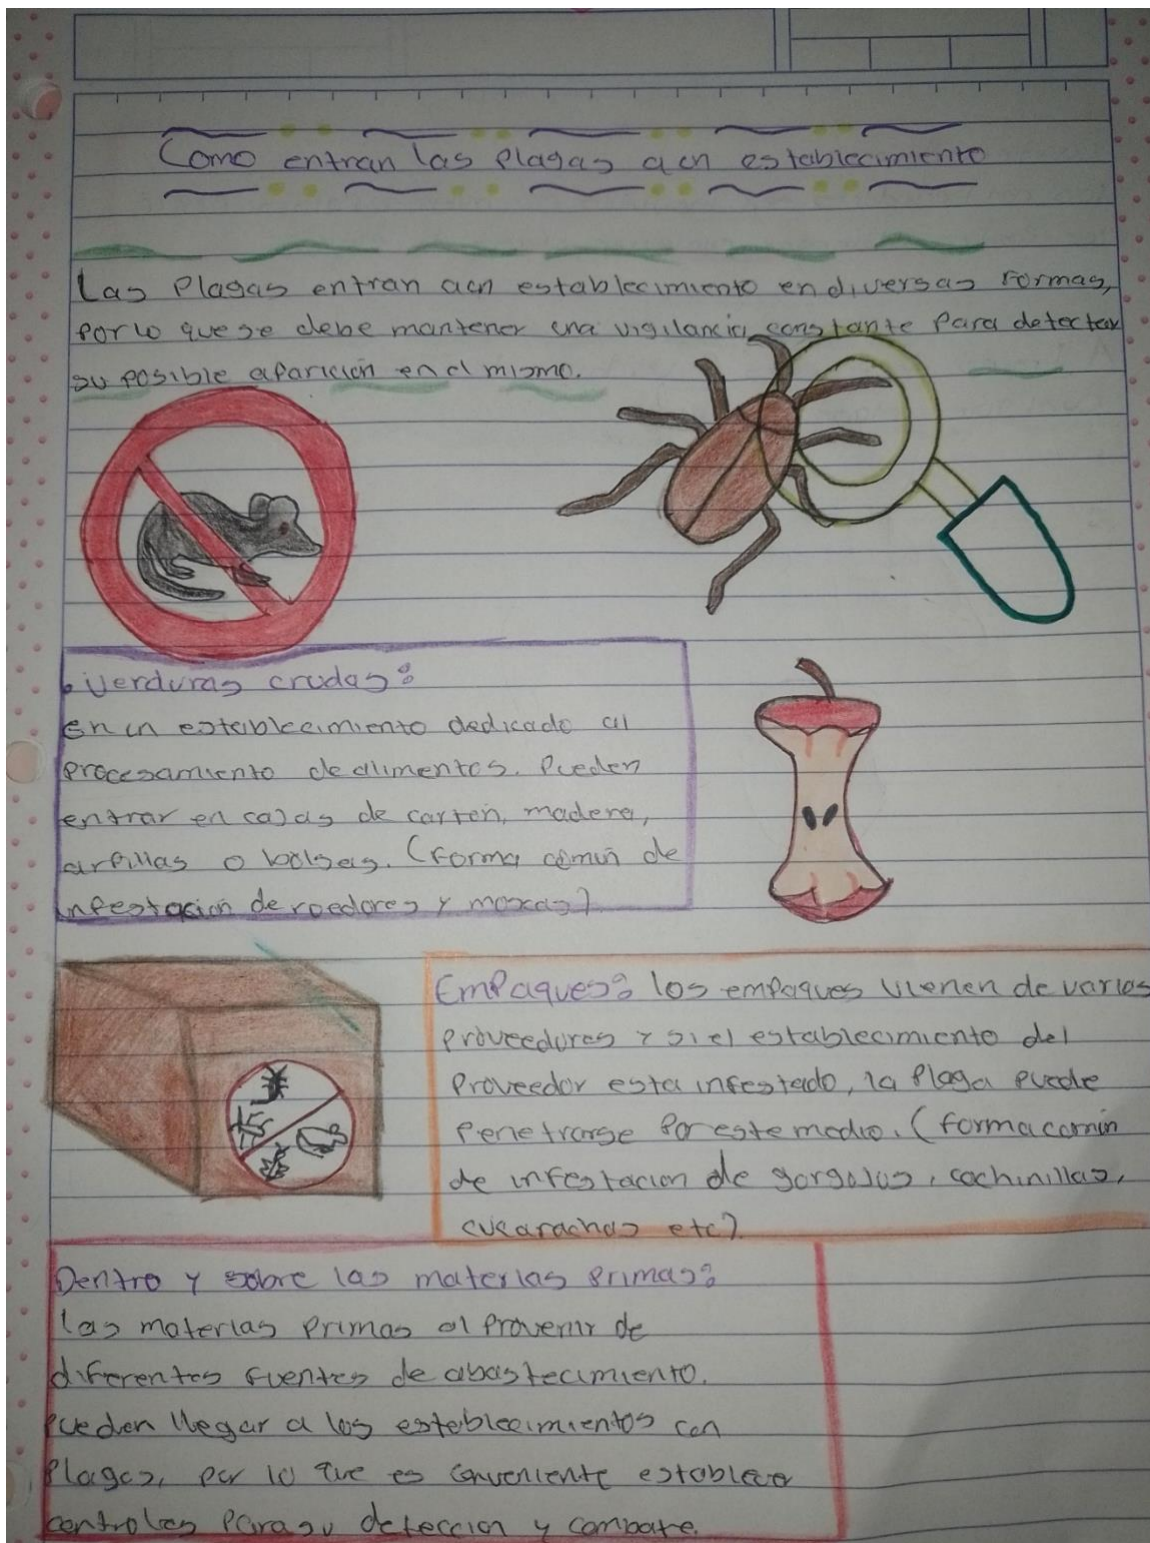 Como entran las Plagas a un establecimiento
Las Plagas entran a un establecimiento en diversas formas,
por lo que se debe mantener una vigilancia constante Para detectar
su posible aparición en el mismo.
Verduras crudas:
En un establecimiento dedicado al
procesamiento de alimentos. Pueden
entrar en cajas de cartón, madera,
arpillas o bolsas. (Forma común de
infestación de roedores y moscas)
Empaques: los empaques vienen de varios
proveedores y si el establecimiento del
Proveedor esta infestado, la Plaga puede
Penetrarse Por este medio. (forma común
de infestacion de gorgojos, cochinillas,
cucarachas etc).
Dentro y sobre las materias Primas:
las materias Primas al Provenir de
diferentes fuentes de abastecimiento.
Pueden llegar a los establecimientos con
Plagas, por lo que es conveniente establecer
controles Para su deteccion y combate.